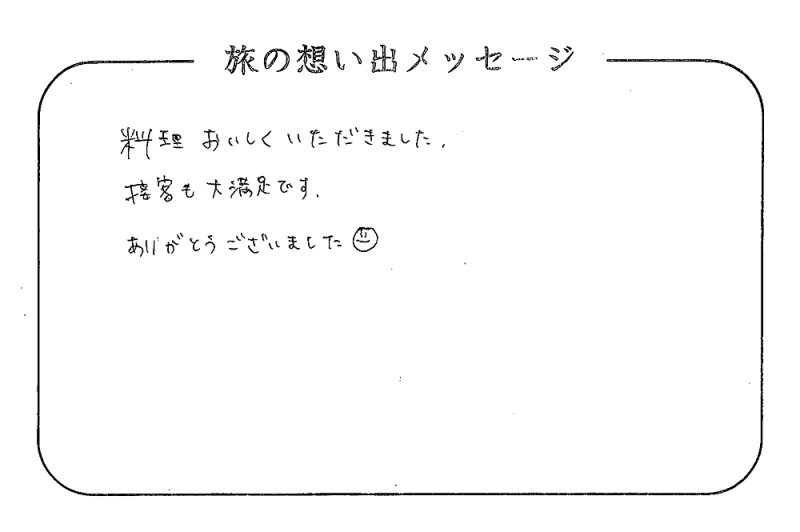 旅の想い出メッセージ
料理 おいしくいただきました.
接客も大満足です.
ありがとうございました☺